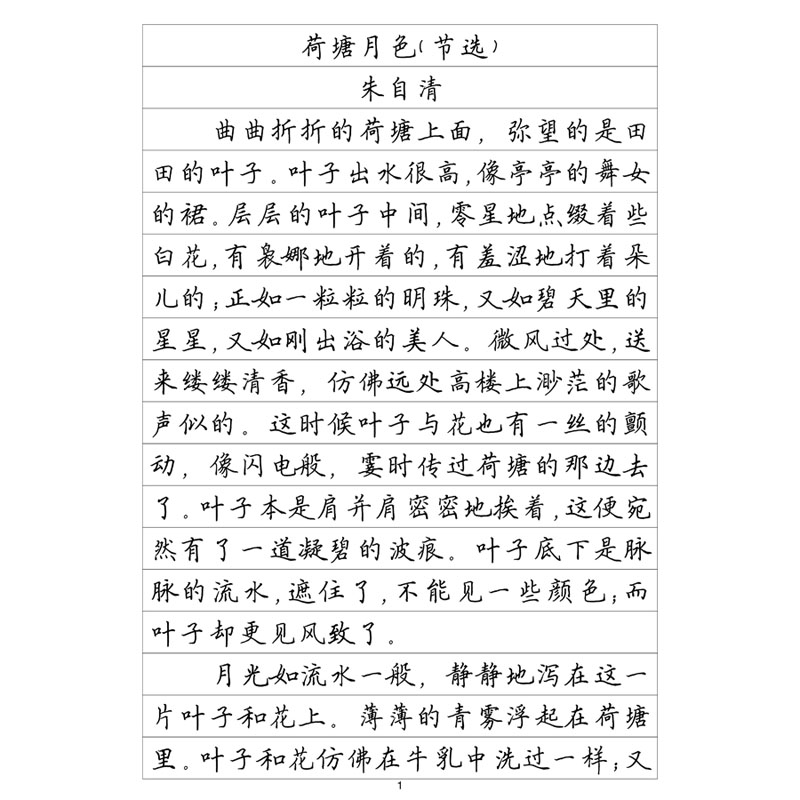 荷塘月色(节选)
朱自清
曲曲折折的荷塘上面，弥望的是田
田的叶子。叶子出水很高,像亭亭的舞女
的裙。层层的叶子中间,零星地点缀着些
白花,有袅娜地开着的,有羞涩地打着朵
儿的;正如一粒粒的明珠,又如碧天里的
星星,又如刚出浴的美人。微风过处,送
来缕缕清香，仿佛远处高楼上渺茫的歌
声似的。这时候叶子与花也有一丝的颤
动，像闪电般，霎时传过荷塘的那边去
了。叶子本是肩并肩密密地挨着,这便宛
然有了一道凝碧的波痕。叶子底下是脉
脉的流水,遮住了,不能见一些颜色;而
叶子却更见风致了。
月光如流水一般，静静地泻在这一
片叶子和花上。薄薄的青雾浮起在荷塘
里。叶子和花仿佛在牛乳中洗过一样;又
1